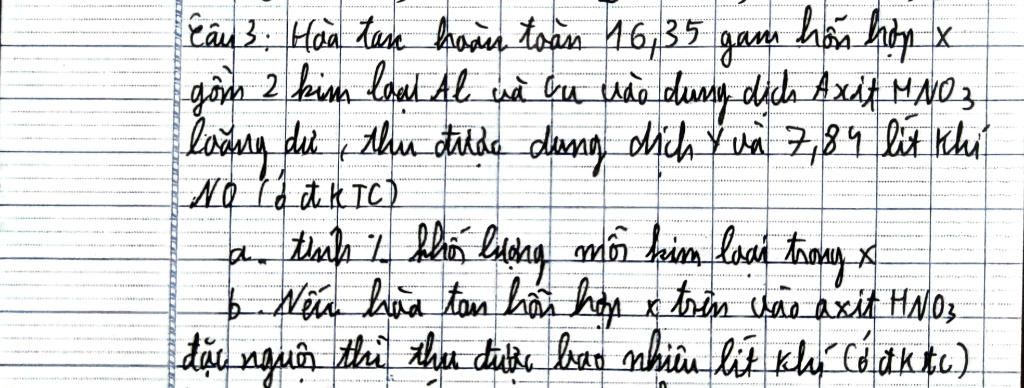 Câu 3: Hòa tan hoàn toàn 16,35 gam hỗn hợp X
gồm 2 kim loại Al và Cu vào dung dịch Axit HNO3
loãng dư, thu được dung dịch Y và 7,84 lít khí
NO (ở đKTC)
a. tính % khối lượng mỗi kim loại trong X
b. Nếu hòa tan hỗn hợp X trên vào axit HNO3
đặc nguội thì thu được bao nhiêu lít khí (ở đktc)